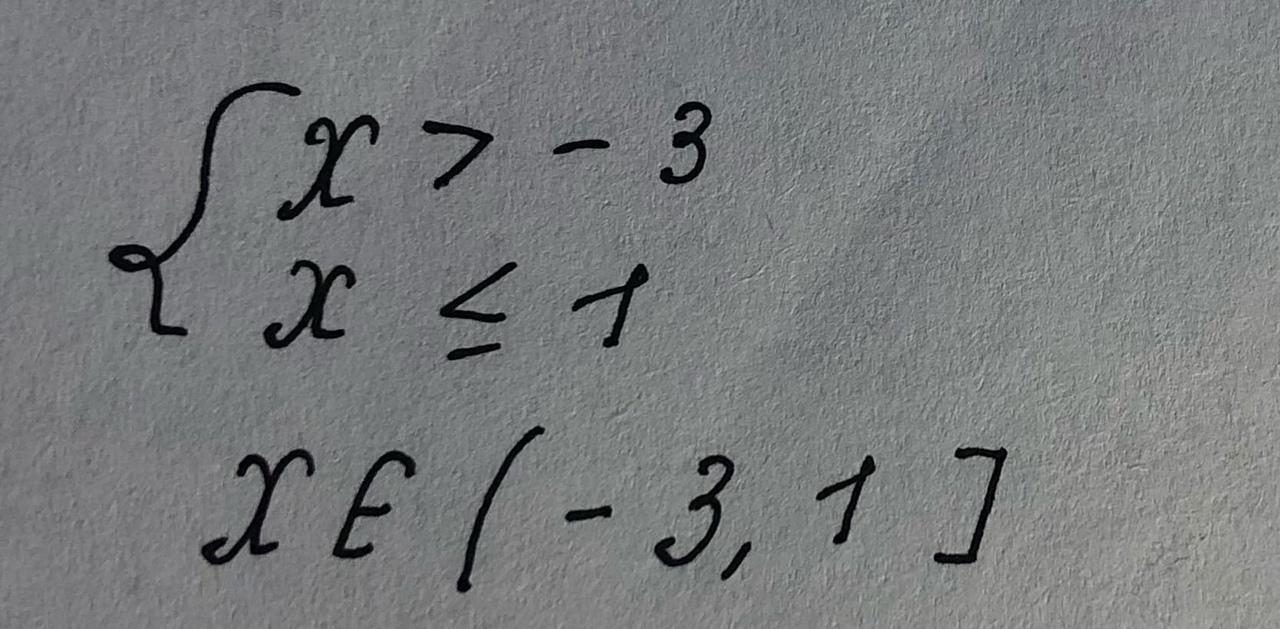 { x > - 3
x ≤ 1
x ∈ ( - 3, 1 ]